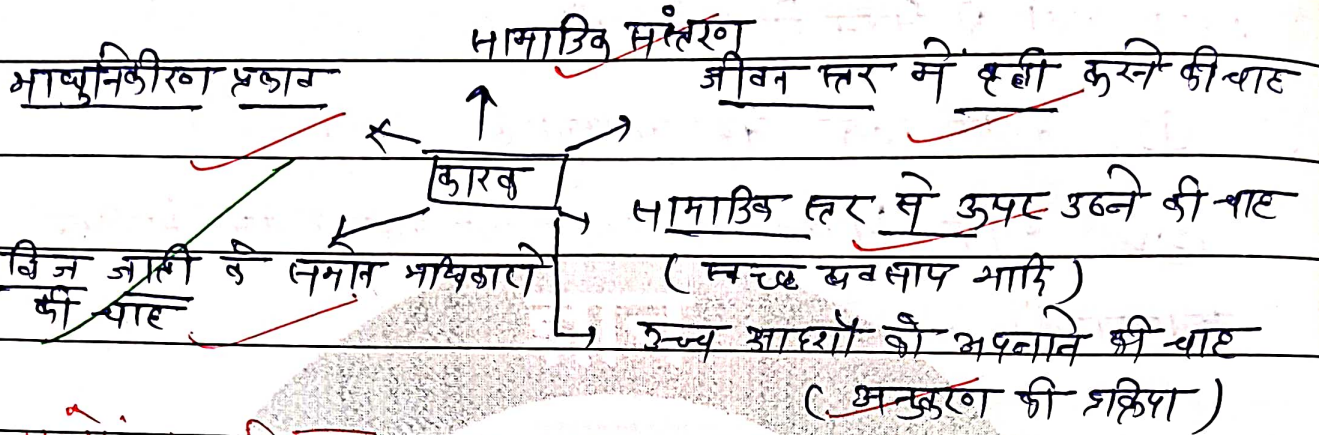 सामाजिक संस्तरण
आधुनिकीरण प्रभाव
जीवन स्तर में वृद्धी करने की चाह
कारक
सामाजिक स्तर से ऊपर उठने की चाह
(स्वच्छ व्यवसाय आदि)
द्विज जाती के समान अधिकारो
की चाह
उच्च आदर्शों को अपनाने की चाह
(अनुकरण की प्रक्रिया)